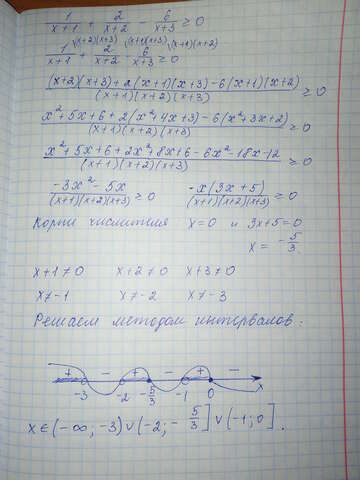 1/(x+1) + 2/(x+2) - 6/(x+3) ≥ 0
1/(x+1) \(x+2)(x+3) + 2/(x+2) \(x+1)(x+3) - 6/(x+3) \(x+1)(x+2) ≥ 0
((x+2)(x+3)+2(x+1)(x+3)-6(x+1)(x+2))/((x+1)(x+2)(x+3)) ≥ 0
(x²+5x+6+2(x²+4x+3)-6(x²+3x+2))/((x+1)(x+2)(x+3)) ≥ 0
(x²+5x+6+2x²+8x+6-6x²-18x-12)/((x+1)(x+2)(x+3)) ≥ 0
(-3x²-5x)/((x+1)(x+2)(x+3)) ≥ 0 (-x(3x+5))/((x+1)(x+2)(x+3)) ≥ 0
Корни числителя x=0 и 3x+5=0
x = -5/3.
x+1≠0 x+2≠0 x+3≠0
x≠-1 x≠-2 x≠-3
Решаем методом интервалов:
+ - + - + -
-3 -2 -5/3 -1 0 x
x∈(-∞;-3)∪(-2;-5/3]∪(-1;0].